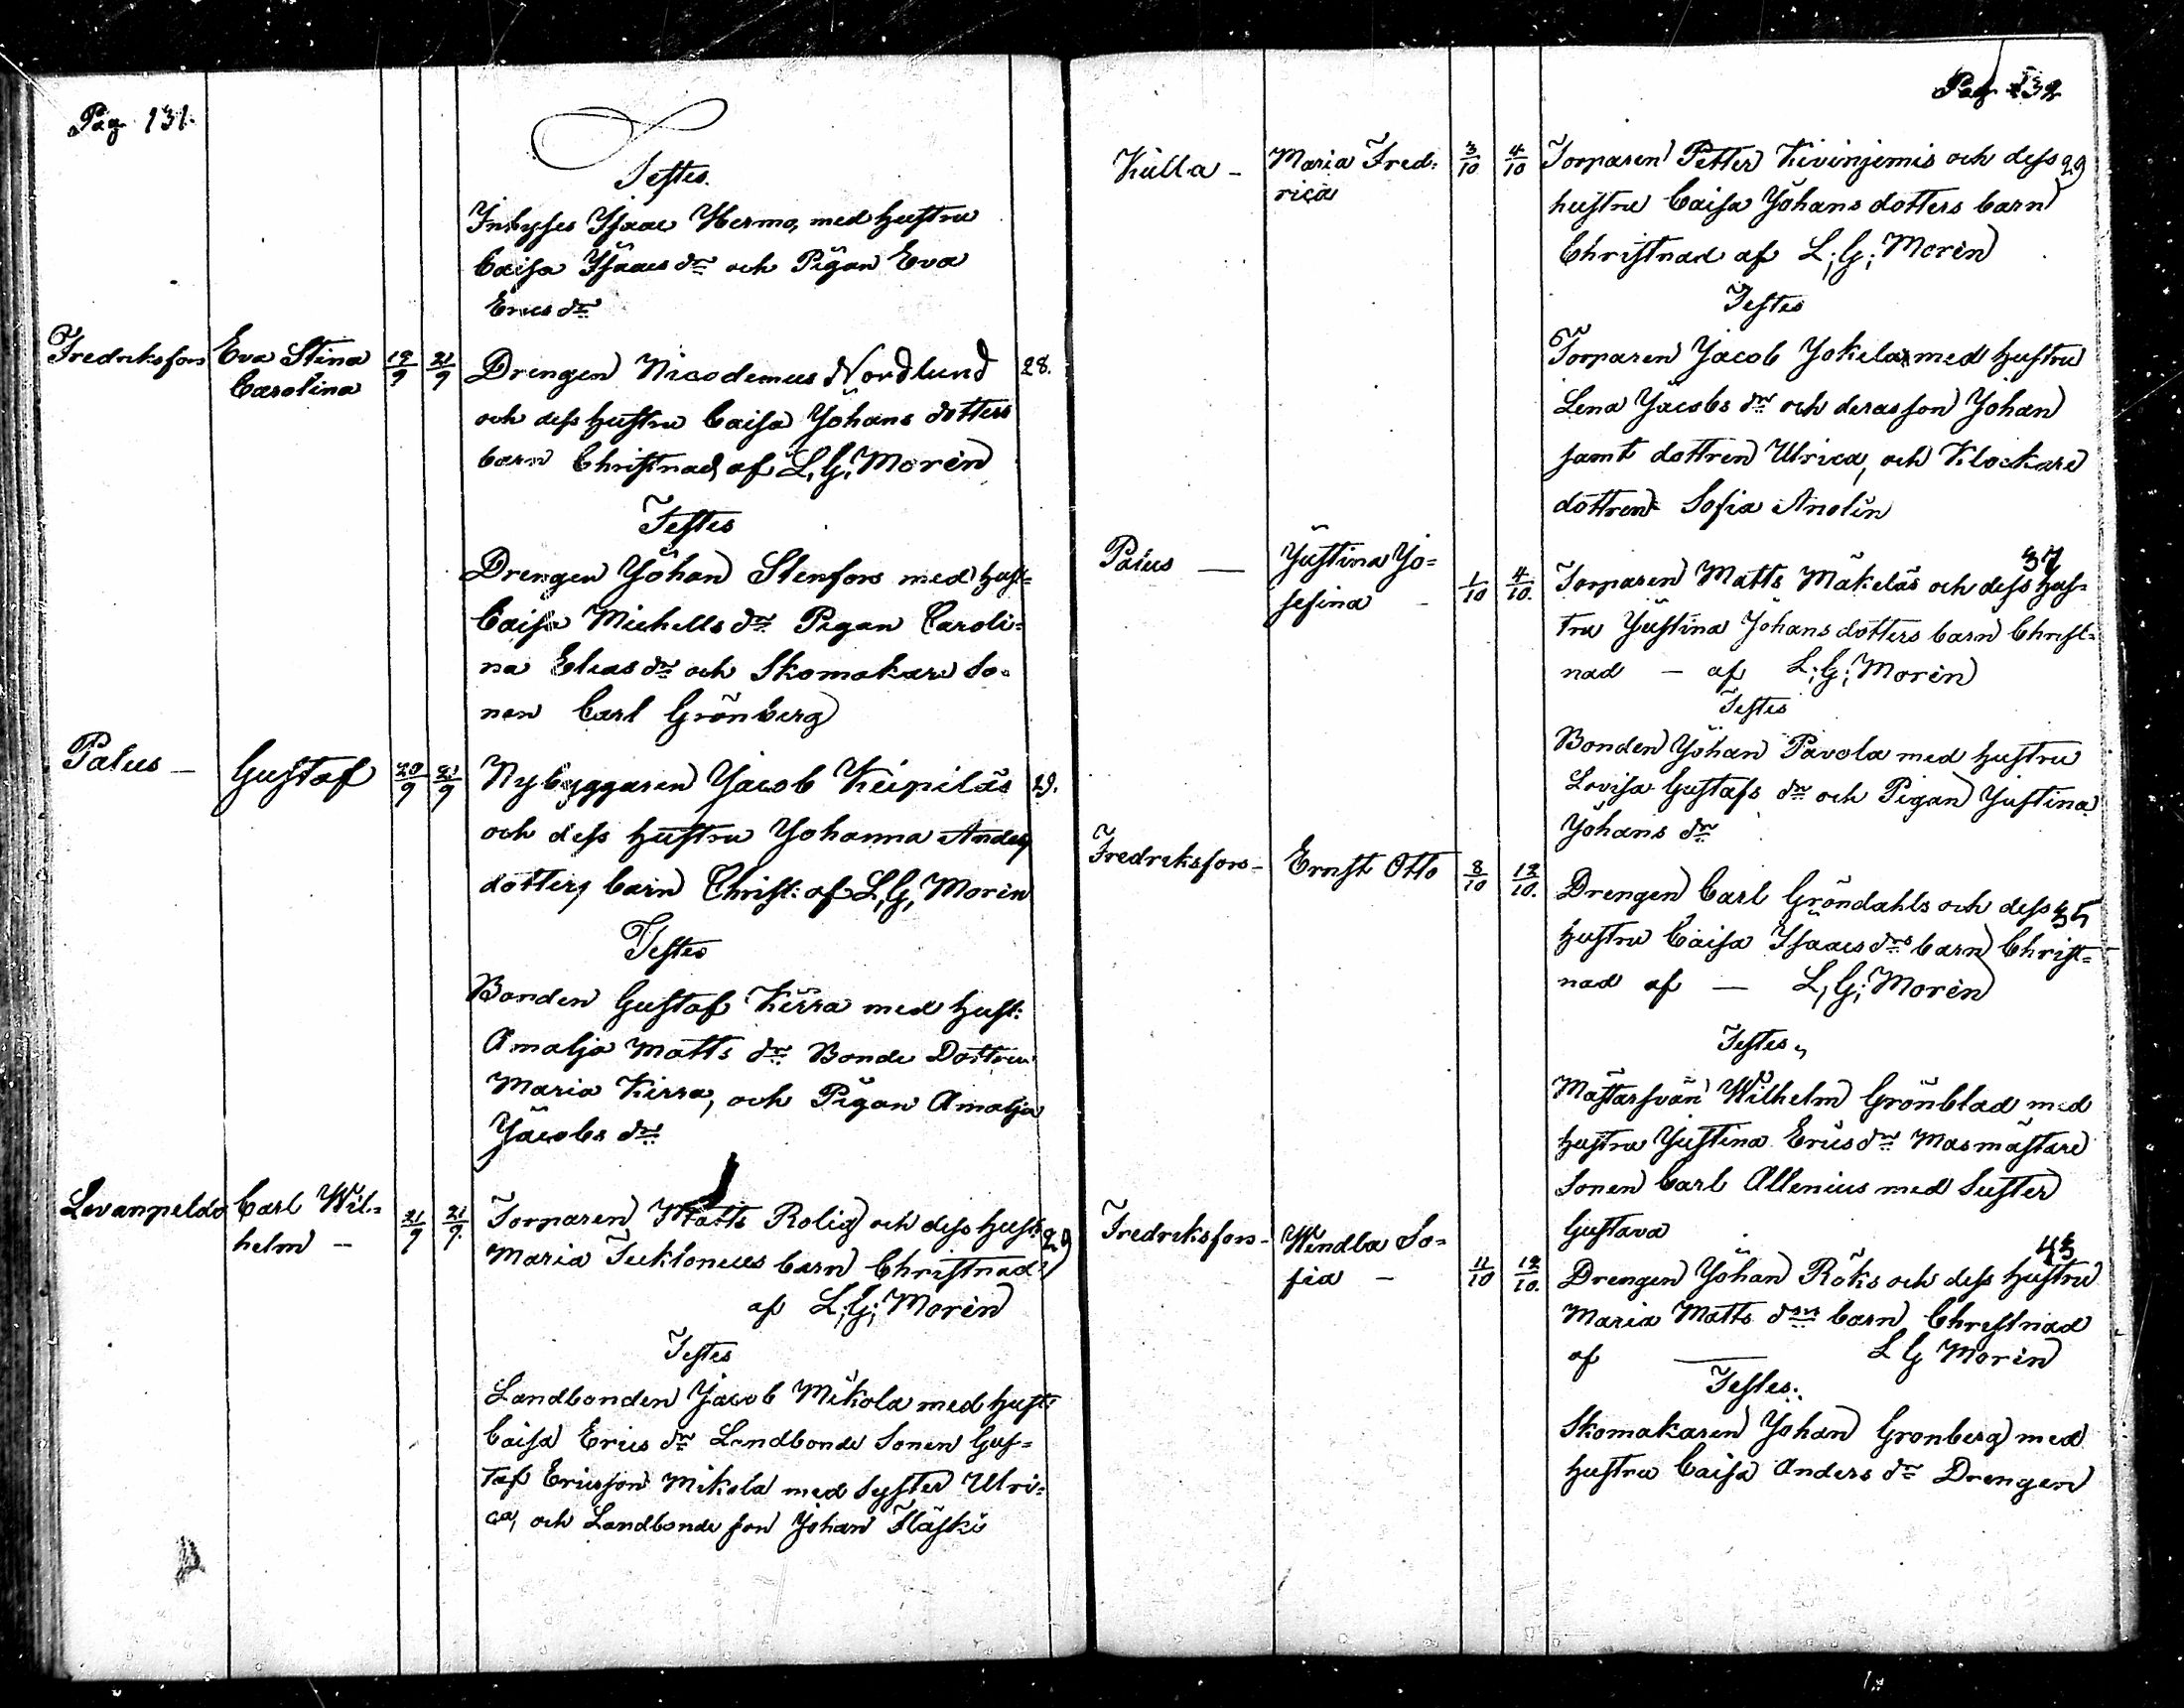 Pag 131.
Testes.
Inhyses Isaac Hermo, med hustru
Caisa Isaacs dr och Pigan Eva
Erics dr
Fredriksfors Eva Stina 19/9 21/9 Drengen Nicodemus Nordlund 28.
Carolina
och dess hustru Caisa Johans dotters
barn Christnad af L. G. Morin
Testes
Drengen Johan Stenfors med hust=
Caisa Michells dr Pigan Caroli=
na Elias dr och Skomakare So=
nen Carl Grönberg
Palus – Gustaf 20/9 21/9 Nybyggaren Jacob Keipiläs 29.
och dess hustru Johanna Anders
dotters barn Christ: af L. G. Morin
Testes
Bonden Gustaf Kirra med hust:
Amalja Matts dr Bonde Dottren
Maria Kirra, och Pigan Amalja
Jacobs dr
Levanpeldo Carl Wil= 21/9 21/9 Torparen Matts Rolig och dess hust: 29
helm – Maria Tuklonius barn Christnad
af L; G; Morin
Testes
Landbonden Jacob Mikola med hust:
Caisa Erics dr Landbonde Sonen Gus=
taf Ericsson Mikola med Syster Ulri=
ca, och Landbonde son Johan Fläski
Pag 132
Kulla – Maria Fred= 3/10 4/10 Torparen Petter Kivinjemis och dess 29
rica
hustru Caisa Johans dotters barn
Christnad af L; G; Morin
Testes
Torparen Jacob Jokela med hustru
Lena Jacobs dr och deras son Johan
samt dottren Ulrica, och Klockare
dottren Sofia Anolin
Palus — Justina Jo= 1/10 4/10. Torparen Matts Mäkeläs och dess hus= 37
sefina –
tru Justina Johans dotters barn Christ=
nad – af L; G; Morin
Testes
Bonden Johan Pavola med hustru
Lovisa Gustafs dr och Pigan Justina
Johans dr
Fredriksfors – Ernst Otto 8/10 12/10. Drengen Carl Gröndahls och dess 35
hustru Caisa Isaacs drs barn Christ=
nad af — L; G; Morin
Testes,
Mästarsven Wilhelm Grönblad med
hustru Justina Erics dr Masmästare
Sonen Carl Allenius med Suster
Gustava
Fredriksfors – Wendla So= 11/10 12/10. Drengen Johan Röks och dess hustru 43
fia –
Maria Matts drs barn Christnad
af — L G Morin
Testes.
Skomakaren Johan Gronberg med
hustru Caisa Anders dr Drengen